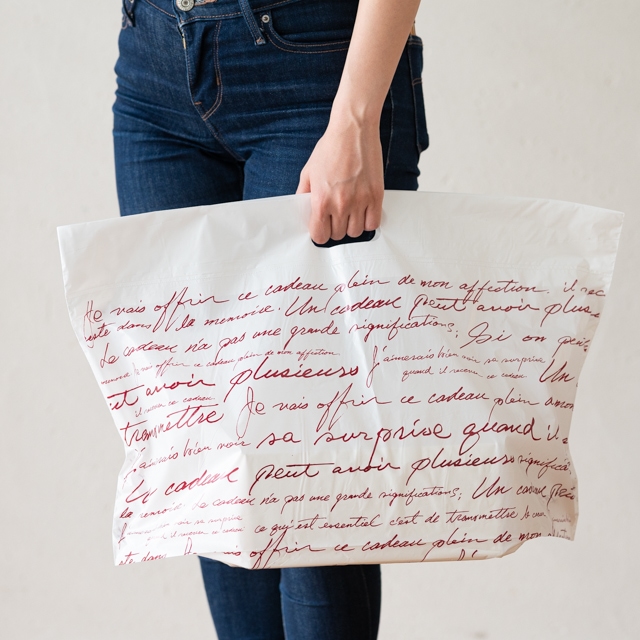 Je vais offrir ce cadeau plein de mon affection. il
reste dans la memoire. Un cadeau peut avoir plus
Le cadeau n'a pas une grande significations; Si on
offrir ce cadeau plein de mon affection
J'aimerais bien voir sa surprise
et avoir plusieurs quand il Un
transmettre Je vais offrir ce cadeau plein
J'aimerais bien voir sa surprise quand il
Un cadeau peut avoir plusieurs significa
Le cadeau n'a pas une grande significations; Un cadeau
ce qu'est essentiel c'est de transmettre
reste dans offrir ce cadeau plein de mon